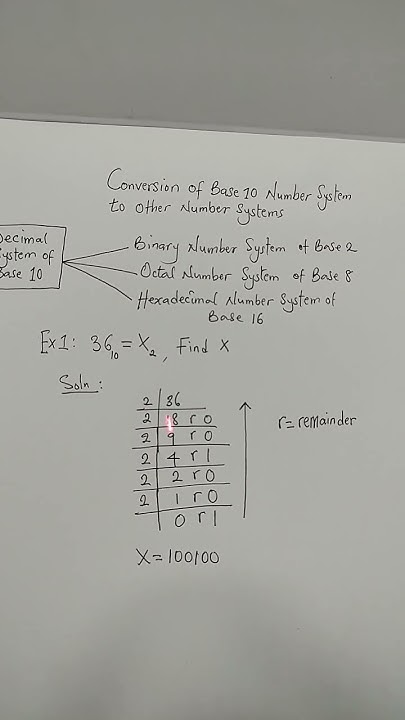 Conversion of Base 10 Number System
to Other Number Systems
Decimal
System of
Base 10
Binary Number System of Base 2
Octal Number System of Base 8
Hexadecimal Number System of
Base 16
Ex1: 36₁₀ = X₂, Find X
Soln:
2 | 36
2 | 18 r 0
2 | 9 r 0
2 | 4 r 1
2 | 2 r 0
2 | 1 r 0
0 r 1
r = remainder
X = 100100